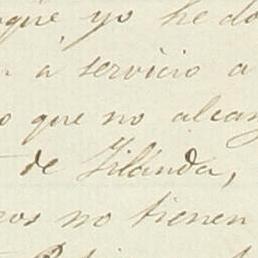 que yo he do
a servicio a
o que no alcan
de Zilanda,
os no tienen